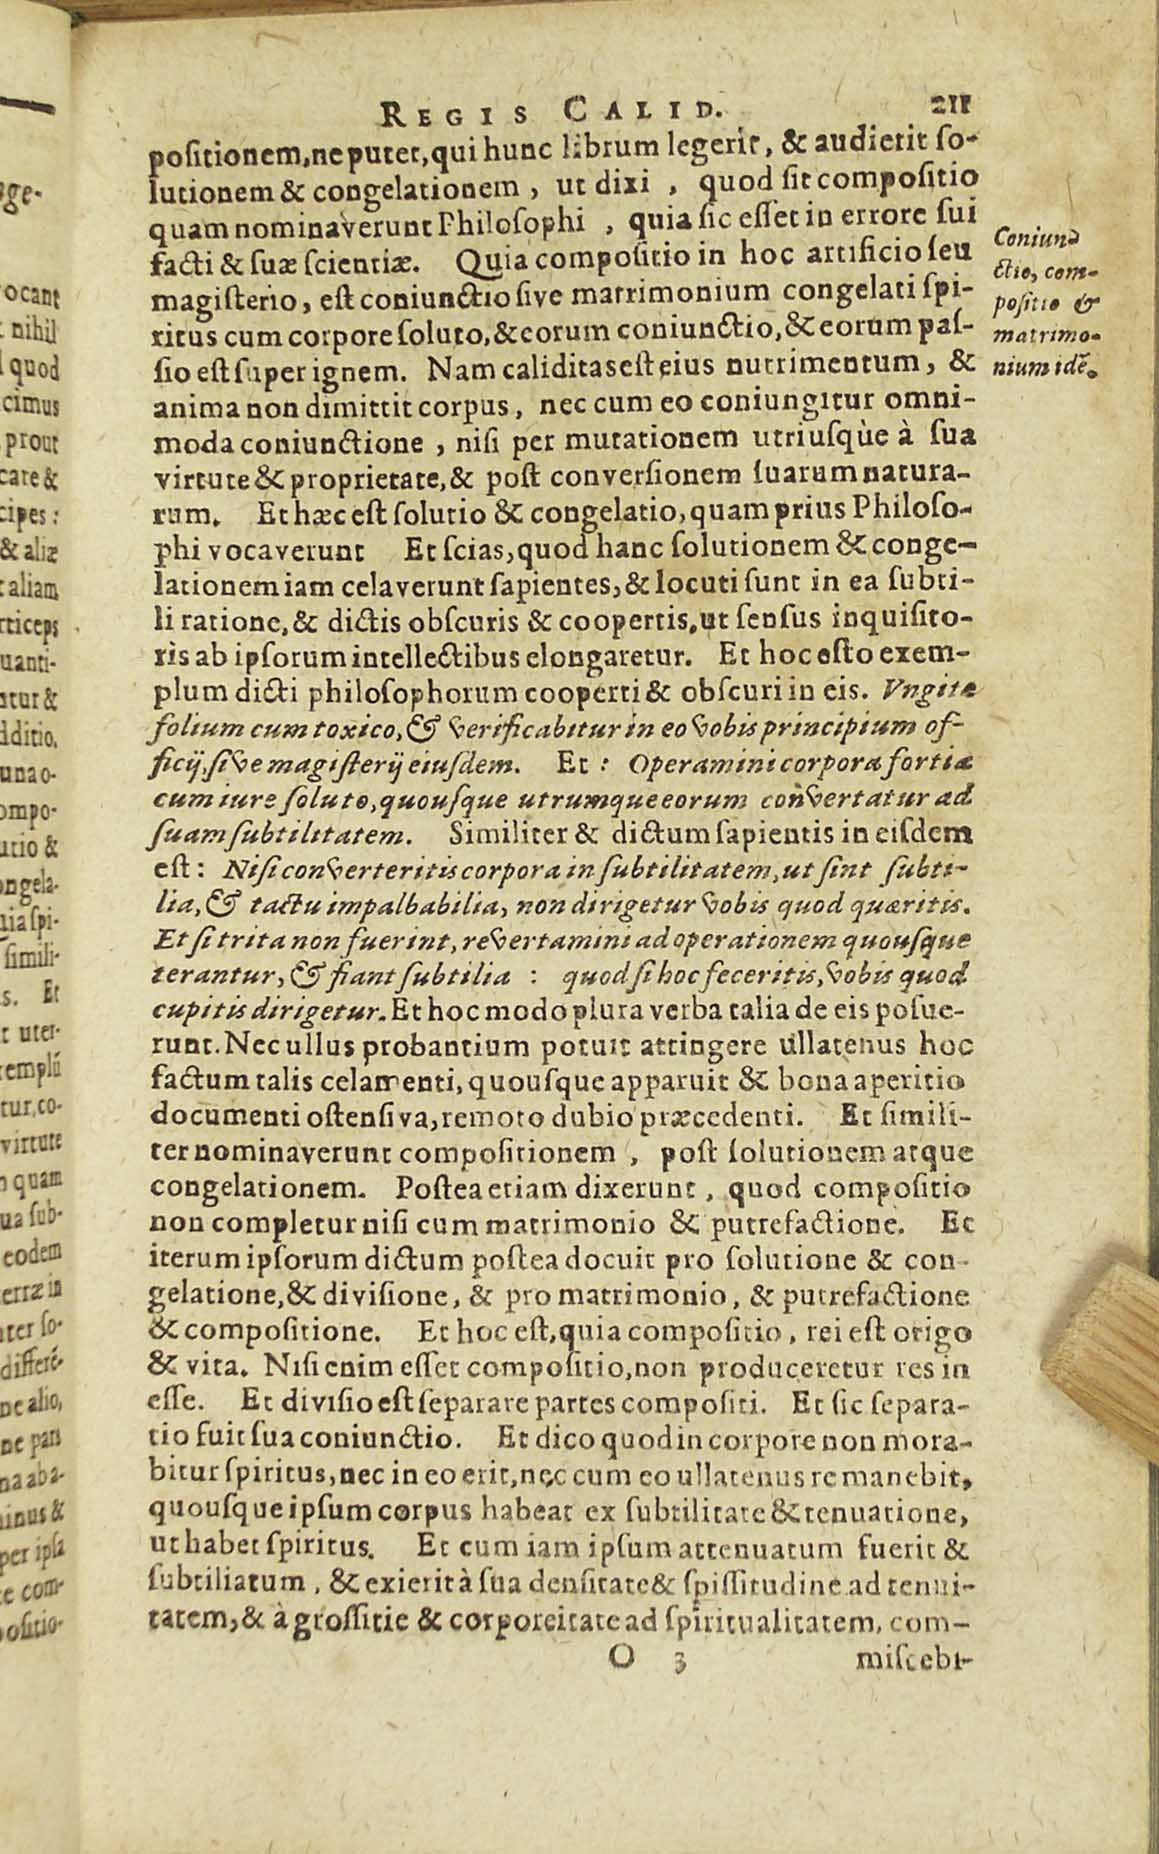 REGIS CALID. 211
positionem, ne putet, qui hunc librum legerit, & audierit so-
lutionem & congelationem, ut dixi, quod sit compositio
quam nominaverunt Philosophi, quia sic esset in errore sui
facti & suæ scientiæ. Quia compositio in hoc artificio seu
magisterio, est coniunctio sive matrimonium congelati spi-
ritus cum corpore soluto, & eorum coniunctio, & eorum pas-
sio est super ignem. Nam caliditas est eius nutrimentum, &
anima non dimittit corpus, nec cum eo coniungitur omni-
moda coniunctione, nisi per mutationem utriusqùe à sua
virtute & proprietate, & post conversionem suarum natura-
rum. Et hæc est solutio & congelatio, quam prius Philoso-
phi vocaverunt Et scias, quod hanc solutionem & conge-
lationem iam celaverunt sapientes, & locuti sunt in ea subti-
li ratione, & dictis obscuris & coopertis, ut sensus inquisito-
ris ab ipsorum intellectibus elongaretur. Et hoc esto exem-
plum dicti philosophorum cooperti & obscuri in eis. Vngite
folium cum toxico, & verificabitur in eo vobis principium of-
ficij, sive magisterij eiusdem. Et: Operamini corpora fortia
cum iure soluto, quousque utrumque eorum convertatur ad
suam subtilitatem. Similiter & dictum sapientis in eisdem
est: Nisi converteritis corpora in subtilitatem, ut sint subti-
lia, & tactu impalbabilia, non dirigetur vobis quod quæritis.
Et si trita non fuerint, revertamini ad operationem quousque
terantur, & fiant subtilia : quod si hoc feceritis, vobis quod
cupitis dirigetur. Et hoc modo plura verba talia de eis posue-
runt. Nec ullus probantium potuit attingere ullatenus hoc
factum talis celamenti, quousque apparuit & bona aperitio
documenti ostensiva, remoto dubio præcedenti. Et simili-
ter nominaverunt compositionem, post solutionem atque
congelationem. Postea etiam dixerunt, quod compositio
non completur nisi cum matrimonio & putrefactione. Et
iterum ipsorum dictum postea docuit pro solutione & con-
gelatione, & divisione, & pro matrimonio, & putrefactione
& compositione. Et hoc est, quia compositio, rei est origo
& vita. Nisi enim esset compositio, non produceretur res in
esse. Et divisio est separare partes compositi. Et sic separa-
tio fuit sua coniunctio. Et dico quod in corpore non mora-
bitur spiritus, nec in eo erit, nec cum eo ullatenus remanebit,
quousque ipsum corpus habeat ex subtilitate & tenuatione,
ut habet spiritus. Et cum iam ipsum attenuatum fuerit &
subtiliatum, & exierit à sua densitate & spissitudine ad tenui-
tatem, & à grossitie & corporeitate ad spiritualitatem, com-
O 3 miscebi-
Coniun-
ctio, com-
positio &
matrimo-
nium idẽ.
ocant
nihil
quod
cimus
prout
care &
cipes:
& aliæ
aliam
rticeps
uanti-
atur &
dditio.
una o-
ompo-
utio &
ongela-
uia spi-
simili-
s. Et
t uter-
emplũ
tur, co-
virtute
quam
ua sub-
eodem
erræ in
ter so-
differẽ-
ne alio,
ne pari
na aba-
inus &
per ipsa
e com-
ositio-